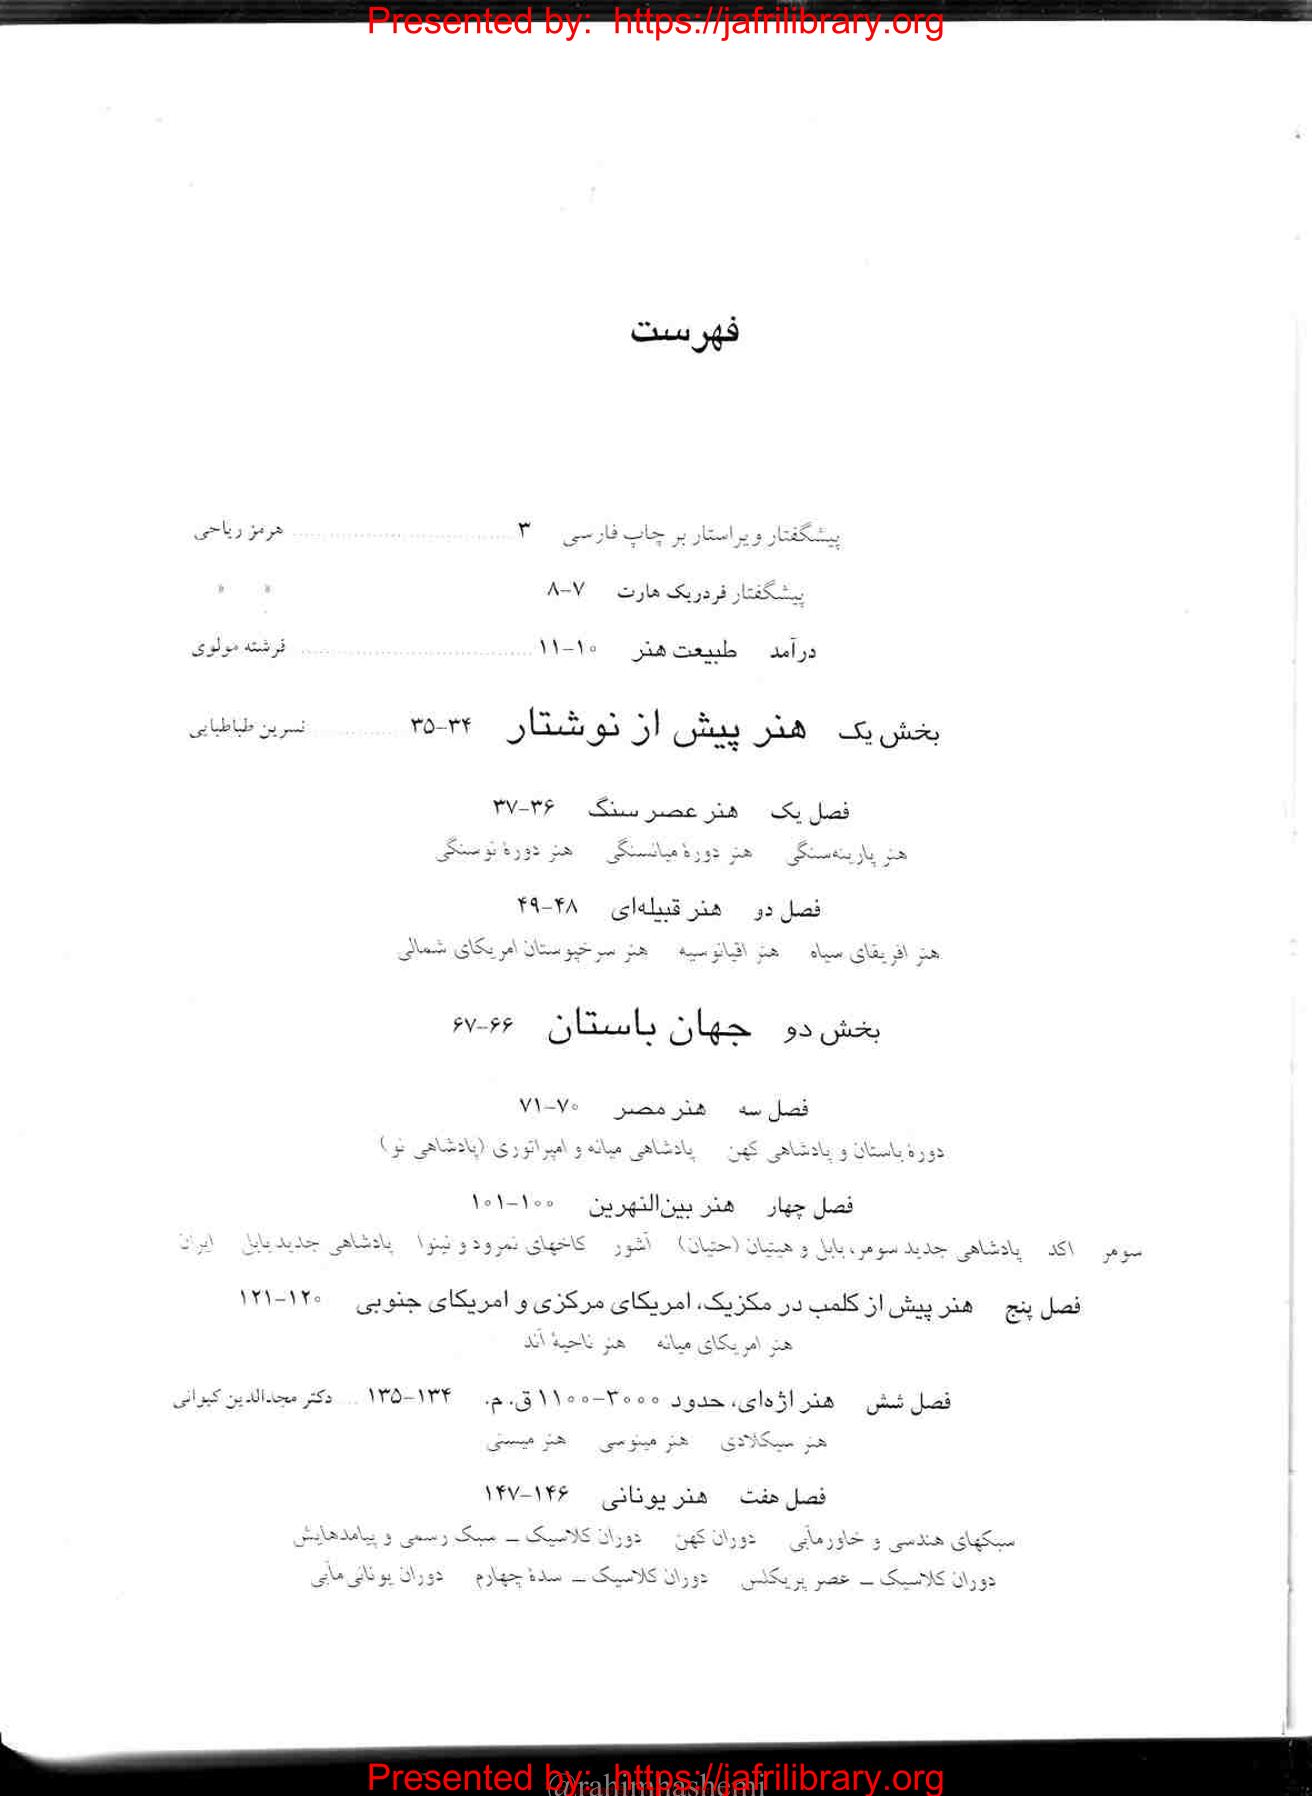 Presented by: https://jafrilibrary.org
فهرست
پیشگفتار ویراستار بر چاپ فارسی ۳ .......... هرمز ریاحی
پیشگفتار فردریک هارت ۷-۸ » »
درآمد طبیعت هنر ۱۰-۱۱ .......... فرشته مولوی
بخش یک هنر پیش از نوشتار ۳۴-۳۵ .......... نسرین طباطبایی
فصل یک هنر عصر سنگ ۳۶-۳۷
هنر پارینه‌سنگی هنر دورهٔ میانسنگی هنر دورهٔ نوسنگی
فصل دو هنر قبیله‌ای ۴۸-۴۹
هنر افریقای سیاه هنر اقیانوسیه هنر سرخپوستان امریکای شمالی
بخش دو جهان باستان ۶۶-۶۷
فصل سه هنر مصر ۷۰-۷۱
دورهٔ باستان و پادشاهی کهن پادشاهی میانه و امپراتوری (پادشاهی نو)
فصل چهار هنر بین‌النهرین ۱۰۰-۱۰۱
سومر اکد پادشاهی جدید سومر، بابل و هیتیان (حتیان) آشور کاخهای نمرود و نینوا پادشاهی جدید بابل ایران
فصل پنج هنر پیش از کلمب در مکزیک، امریکای مرکزی و امریکای جنوبی ۱۲۰-۱۲۱
هنر امریکای میانه هنر ناحیهٔ آند
فصل شش هنر اژه‌ای، حدود ۳۰۰۰-۱۱۰۰ ق.م. ۱۳۴-۱۳۵ ... دکتر مجدالدین کیوانی
هنر سیکلادی هنر مینوسی هنر میسنی
فصل هفت هنر یونانی ۱۴۶-۱۴۷
سبکهای هندسی و خاورمآبی دوران کهن دوران کلاسیک ــ سبک رسمی و پیامدهایش
دوران کلاسیک ــ عصر پریکلس دوران کلاسیک ــ سدهٔ چهارم دوران یونانی‌مآبی
Presented by: https://jafrilibrary.org
@rahimhashemi